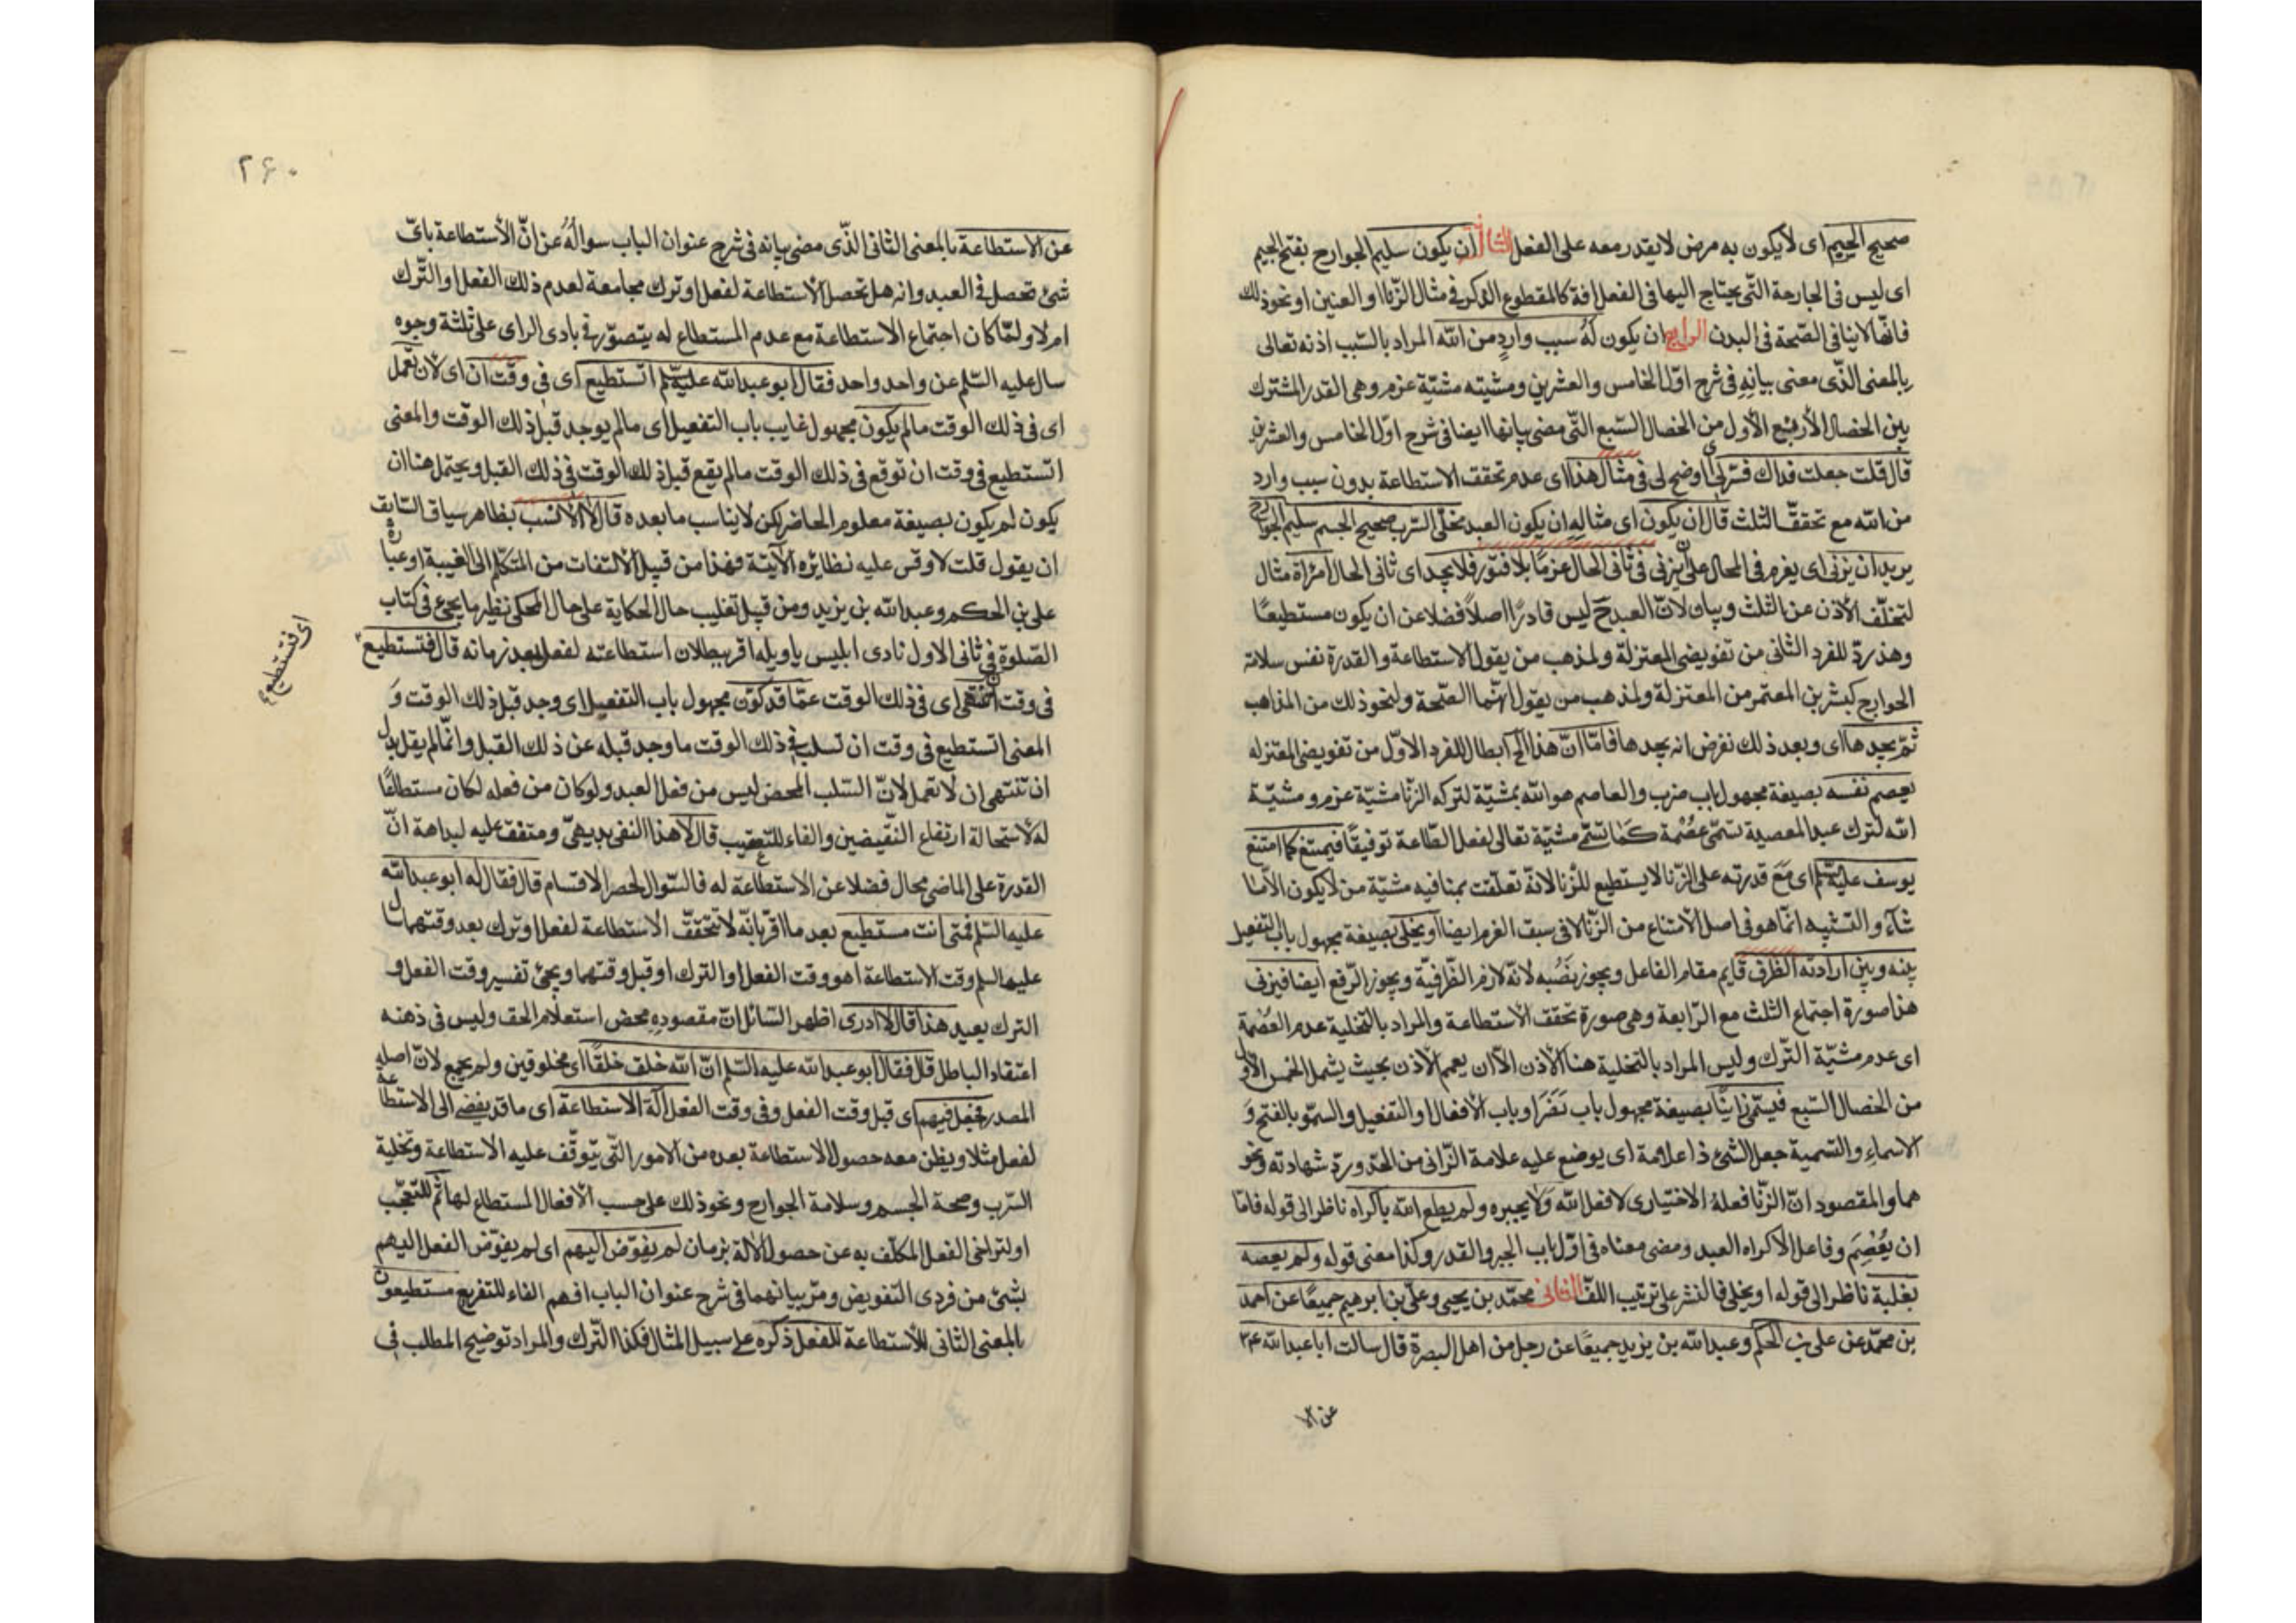 صحيح الجسم اى لا يكون به مرض لا يقدر معه على الفعل الثالث ان يكون سليم الجوارح بفتح الجيم
اى ليس فى الجارحة التّى يحتاج اليها فى الفعل افة كالمقطوع الذكر فى مثال الزّنا او العنين او نحو ذلك
فانّها لا ينافى الصّحة فى البدن الرابع ان يكون لَهُ سبب واردٍ من الله المراد بالسّبب اذنه تعالى
بالمعنى الذّى معنى بيانِهِ فى شرح اوّل الخامس والعشرين ومشيته مشيّة عزم وهى القدر المشترك
بين الخصال الأربع الأول من الخصال السّبع التّى مضى بيانها ايضا فى شرح اوّل الخامس والعشرين
قال قلت جعلت فداك فسّر لى اى اوضح لى فى مثال هذا اى عدم تحقق الاستطاعة بدون سبب وارد
من الله مع تحقق الثلث قال ان يكون اى مثاله ان يكون العبد مخلّى السّرب صحيح الجسم سليم الجوارح
يريد ان يزنى اى يعزم فى الحال على ان يزنى فى ثانى الحال عزمًا بلا فتور فلا يجد اى ثانى الحال امرأة مثال
لتخلّف الأذن عن الثلث وبيان لانّ العبد ح ليس قادرًا اصلاً فضلا عن ان يكون مستطيعًا
وهذ ردّ للفرد الثانى من تفويض المعتزلة ولمذهب من يقول الاستطاعة والقدرة نفس سلامة
الجوارح كبشر بن المعتمر من المعتزلة ولمذهب من يقول انّهما الصّحة ولنحو ذلك من المذاهب
ثمّ يجدها اى وبعد ذلك نفرض انه يجدها فامّا انّ هذا الخ ابطال للفرد الاوّل من تفويض المعتزله
يعصم نفسه بصيغة مجهول باب ضرب والعاصم هو الله بمشيّة لتركه الزّنا مشيّة عزم ومشيّة
الله لترك عبد المعصية تسمّى عصْمة كَمَا تسمّى مشيّة تعالى لفعل الطّاعة توفيقًا فيمتنع كما امتنع
يوسف عليه السّلم اى مَعَ قدرته على الزّنا لا يستطيع للزّنا لانّه تعلّقت بمنافيه مشيّة من لا يكون الّا ما
شآء والتشبيه انّما هو فى اصل الأمتناع من الزّنا لا فى سبق العزم ايضا او يخلى بصيغة مجهول باب التفعيل
بينه وبين ارادته الظرف قايم مقام الفاعل ويجوز نصْبه لانّه لازم الظّرفيّة ويجوز الرّفع ايضا فيزنى
هذا صورة اجتماع الثلث مع الرّابعة وهى صورة تحقق الأستطاعة والمراد بالتخلية عدم العصْمة
اى عدم مشيّة التّرك وليس المراد بالتخلية هنا الأذن الّا ان يعمم الأذن بحيث يشمل الخمس الأول
من الخصال السّبع فيسمّى زانيًا بصيغة مجهول باب نَصَرَ او باب الأفعال او التفعيل والسموّ بالفتح وَ
الاسماء والتسمية جعل الشئ ذا علامة اى يوضع عليه علامة الزّانى من الحدّ وردّ شهادته ونحو
هما والمقصود انّ الزّنا فعلهُ الاختيارى لا فعل الله وَلا يجبره ولم يطع الله باكراه ناظر الى قوله فامّا
ان يُعْصِمَ وفاعل الأكراه العبد ومضى معناه فى اوّل باب الجبر والقدر وكذا معنى قوله ولم يعصه
بغلبة ناظر الى قوله او يخلى فالنشر على ترتيب اللفّ الثانى محمّد بن يحيى وعلىّ بن ابرهيم جميعًا عن احمد
بن محمّد عن على بن الحكم وعبد الله بن يزيد جميعًا عن رجل من اهل البصرة قال سالت ابا عبد الله ع
عن الا
۲۶۰
عن الاستطاعة بالمعنى الثانى الذّى مضى بيانه فى شرح عنوان الباب سوالُهُ عن انّ الأستطاعة باىّ
شئ تحصل فى العبد وانه هل تحصل الأستطاعة لفعل او ترك مجامعة لعدم ذلك الفعل او التّرك
ام لا ولمّا كان اجتماع الاستطاعة مع عدم المستطاع له يتصوّر فى بادى الراى على ثلثة وجوه
سال عليه السّلم عن واحد واحد فقال ابو عبد الله عليه السّلم اتستطيع اى فى وقت ان اى لأن تعمل
اى فى ذلك الوقت ما لم يكون مجهول غايب باب التفعيل اى ما لم يوجد قبل ذلك الوقت والمعنى
اتستطيع فى وقت ان توقع فى ذلك الوقت ما لم يقع قبل ذلك الوقت فى ذلك القبل ويحتمل هنا ان
يكون لم يكون بصيغة معلوم الحاضر لكن لا يناسب ما بعده قال لا الأنسب بظاهر سياق السّابق
ان يقول قلت لا وقس عليه نظائره الآتية فهذا من قبيل الألتفات من المتكلّم الى الغيبة او عبارة
على بن الحكم وعبد الله بن يزيد ومن قبيل تغليب حال الحكاية على حال المحكى نظير ما يجئ فى كتاب
الصّلوة فى ثانى الاول نادى ابليس يا ويله اقر ببطلان استطاعته لفعل بعد زمانه قال فتستطيع
اى فتستطيع
فى وقت ان تنتهى اى فى ذلك الوقت عمّا قد كوّن مجهول باب التفعيل اى وجد قبل ذلك الوقت وَ
المعنى اتستطيع فى وقت ان تسلب فى ذلك الوقت ما وجد قبله عن ذلك القبل وانّما لم يقل بدل
ان تنتهى ان لا تعمل لانّ السّلب المحض ليس من فعل العبد ولو كان من فعله لكان مستطاعًا
لَهُ لأستحالة ارتفاع النّقيضين والفاء للتعقيب قال لا هذا النفى بديهىّ ومتفق عليه لبداهة انّ
القدرة على الماضى محال فضلا عن الاستطاعة له فالسّوال لحصر الاقسام قال فقال له ابو عبد الله
عليه السّلم فمتى انت مستطيع بعد ما اقرّ بانّه لا تتحقّق الاستطاعة لفعل او ترك بعد وقتهما سال
عليه السلم وقت الاستطاعة اهو وقت الفعل او الترك او قبل وقتهما ويجئ تفسير وقت الفعل و
الترك بعيد هذا قال لا ادرى اظهر السّائل انّ مقصوده محض استعلام الحق وليس فى ذهنه
اعتقاد الباطل قال فقال ابو عبد الله عليه السّلم انّ الله خلق خلقًا اى مخلوقين ولم يجمع لانّ اصله
المصدر فجعل فيهم اى قبل وقت الفعل وفى وقت الفعل آلة الاستطاعة اى ما قد يفضى الى الاستطاعة
لفعل مثلا ويظن معه حصول الاستطاعة بعده من الامور التّى يتوقّف عليه الاستطاعة وتخلية
السّرب وصحة الجسم وسلامة الجوارح ونحو ذلك على حسب الأفعال المستطاع لها ثمّ للتعجّب
او لتراخى الفعل المكلّف به عن حصول الآلة بزمان لم يفوّض اليهم اى لم يفوّض الفعل اليهم
بشئ من فردى التفويض ومرّ بيانهما فى شرح عنوان الباب افهم الفاء للتفريع مستطيعون
بالمعنى الثانى للأستطاعة للفعل ذكره على سبيل المثال فكذا التّرك والمراد توضيح المطلب فى